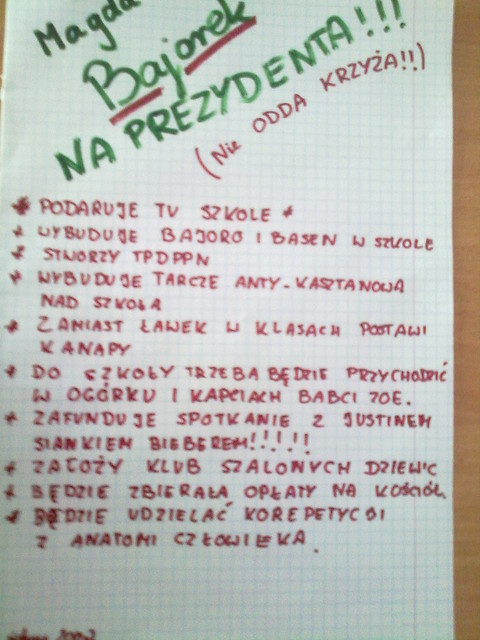 Magda
Bajorek
NA PREZYDENTA!!!
(Nie ODDA KRZYŻA!!)
* PODARUJE TV SZKOLE *
* WYBUDUJE BAJORO I BASEN W SZKOLE
* STWORZY TPDPPN
* WYBUDUJE TARCZE ANTY-KASZTANOWĄ
NAD SZKOŁĄ
* ZAMIAST ŁAWEK W KLASACH POSTAWI
KANAPY
* DO SZKOŁY TRZEBA BĘDZIE PRZYCHODZIĆ
W OGÓRKU I KAPCIACH BABCI ZOE.
* ZAFUNDUJE SPOTKANIE Z JUSTINEM
SIANKIEM BIEBEREM!!!!!
* ZAŁOŻY KLUB SZALONYCH DZIEWIC
* BĘDZIE ZBIERAŁA OPŁATY NA KOŚCIÓŁ
* BĘDZIE UDZIELAĆ KOREPETYCJI
Z ANATOMI CZŁOWIEKA.